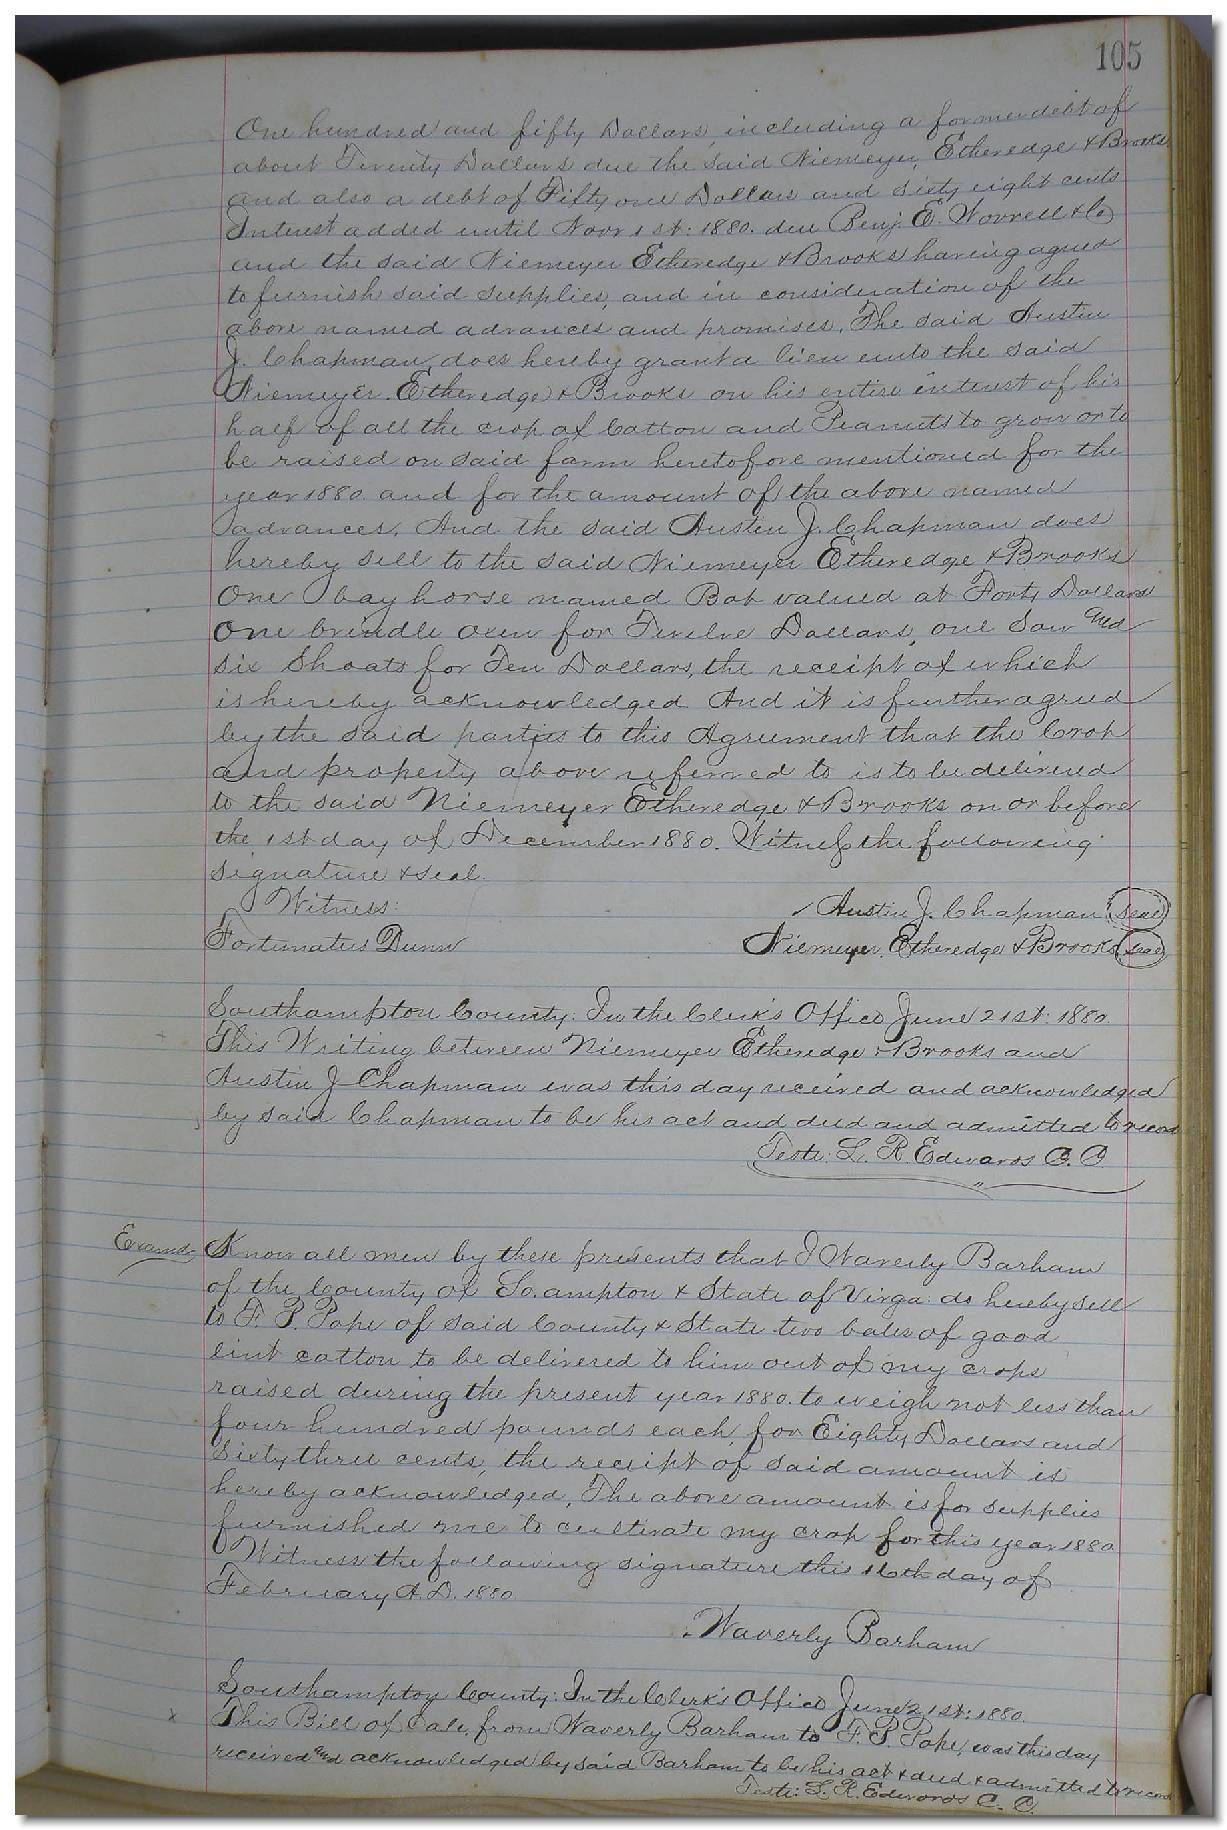 105
One hundred and fifty Dollars, including a former debt of
about Twenty Dollars due the said Niemeyer, Etheredge & Brooks
and also a debt of Fifty one Dollars and sixty eight cents
Interest added until Novr 1st: 1880. due Benj. E. Worrell & Co
and the said Niemeyer Etheredge & Brooks having agreed
to furnish said supplies, and in consideration of the
above named advances and promises, The said Austin
J. Chapman, does hereby grant a lien unto the said
Niemeyer. Etheredge & Brooks on his entire interest of his
half of all the crop of Cotton and Peanuts to grow or to
be raised on said farm heretofore mentioned for the
year 1880. and for the amount of the above named
advances. And the said Austin J. Chapman does
hereby sell to the said Niemeyer Etheredge & Brooks
One bay horse named Bob valued at Forty Dollars
One brindle oxen for Twelve Dollars, one Sow and
Six Shoats for Ten Dollars, the receipt of which
is hereby acknowledged And it is further agreed
by the said parties to this Agreement that the Crop
and property above referred to is to be delivered
to the said Niemeyer Etheredge & Brooks on or before
the 1st day of December 1880. Witness the following
signature & seal.
Witness: Austin J. Chapman (seal)
Fortunatus Dunn Niemeyer, Etheredge & Brooks (seal)
Southampton County: In the Clerk's Office June 21st: 1880.
This Writing between Niemeyer Etheredge & Brooks and
Austin J Chapman was this day received and acknowledged
by said Chapman to be his act and deed and admitted to record
Teste: L. R. Edwards C. C
Examd Know all men by these presents that I Waverly Barham
of the County of So.ampton & State of Virga. do hereby sell
to F. P. Pope of said County & State two bales of good
lint cotton to be delivered to him out of my crops
raised during the present year 1880. to weigh not less than
four hundred pounds each, for Eighty Dollars and
Sixty three cents, the receipt of said amount is
hereby acknowledged, The above amount is for supplies
furnished me to cultivate my crop for this year 1880
Witness the following signature this 16th day of
February A. D. 1880
Waverly Barham
Southampton County: In the Clerk's Office June 21st: 1880.
x This Bill of Sale, from Waverly Barham to F. P. Pope, was this day
received and acknowledged by said Barham to be his act & deed & admitted to record
Teste: L. R. Edwards C. C.